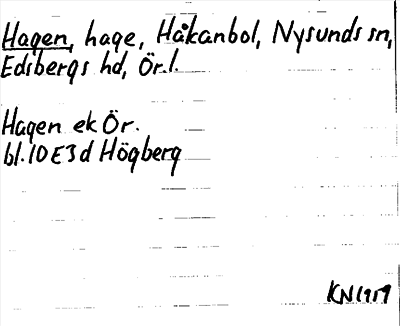 Hagen, hage, Håkanbol, Nysunds sn,
Edsbergs hd, Ör.l.
Hagen ek Ör.
bl. 10E3d Högberg
KN 1959